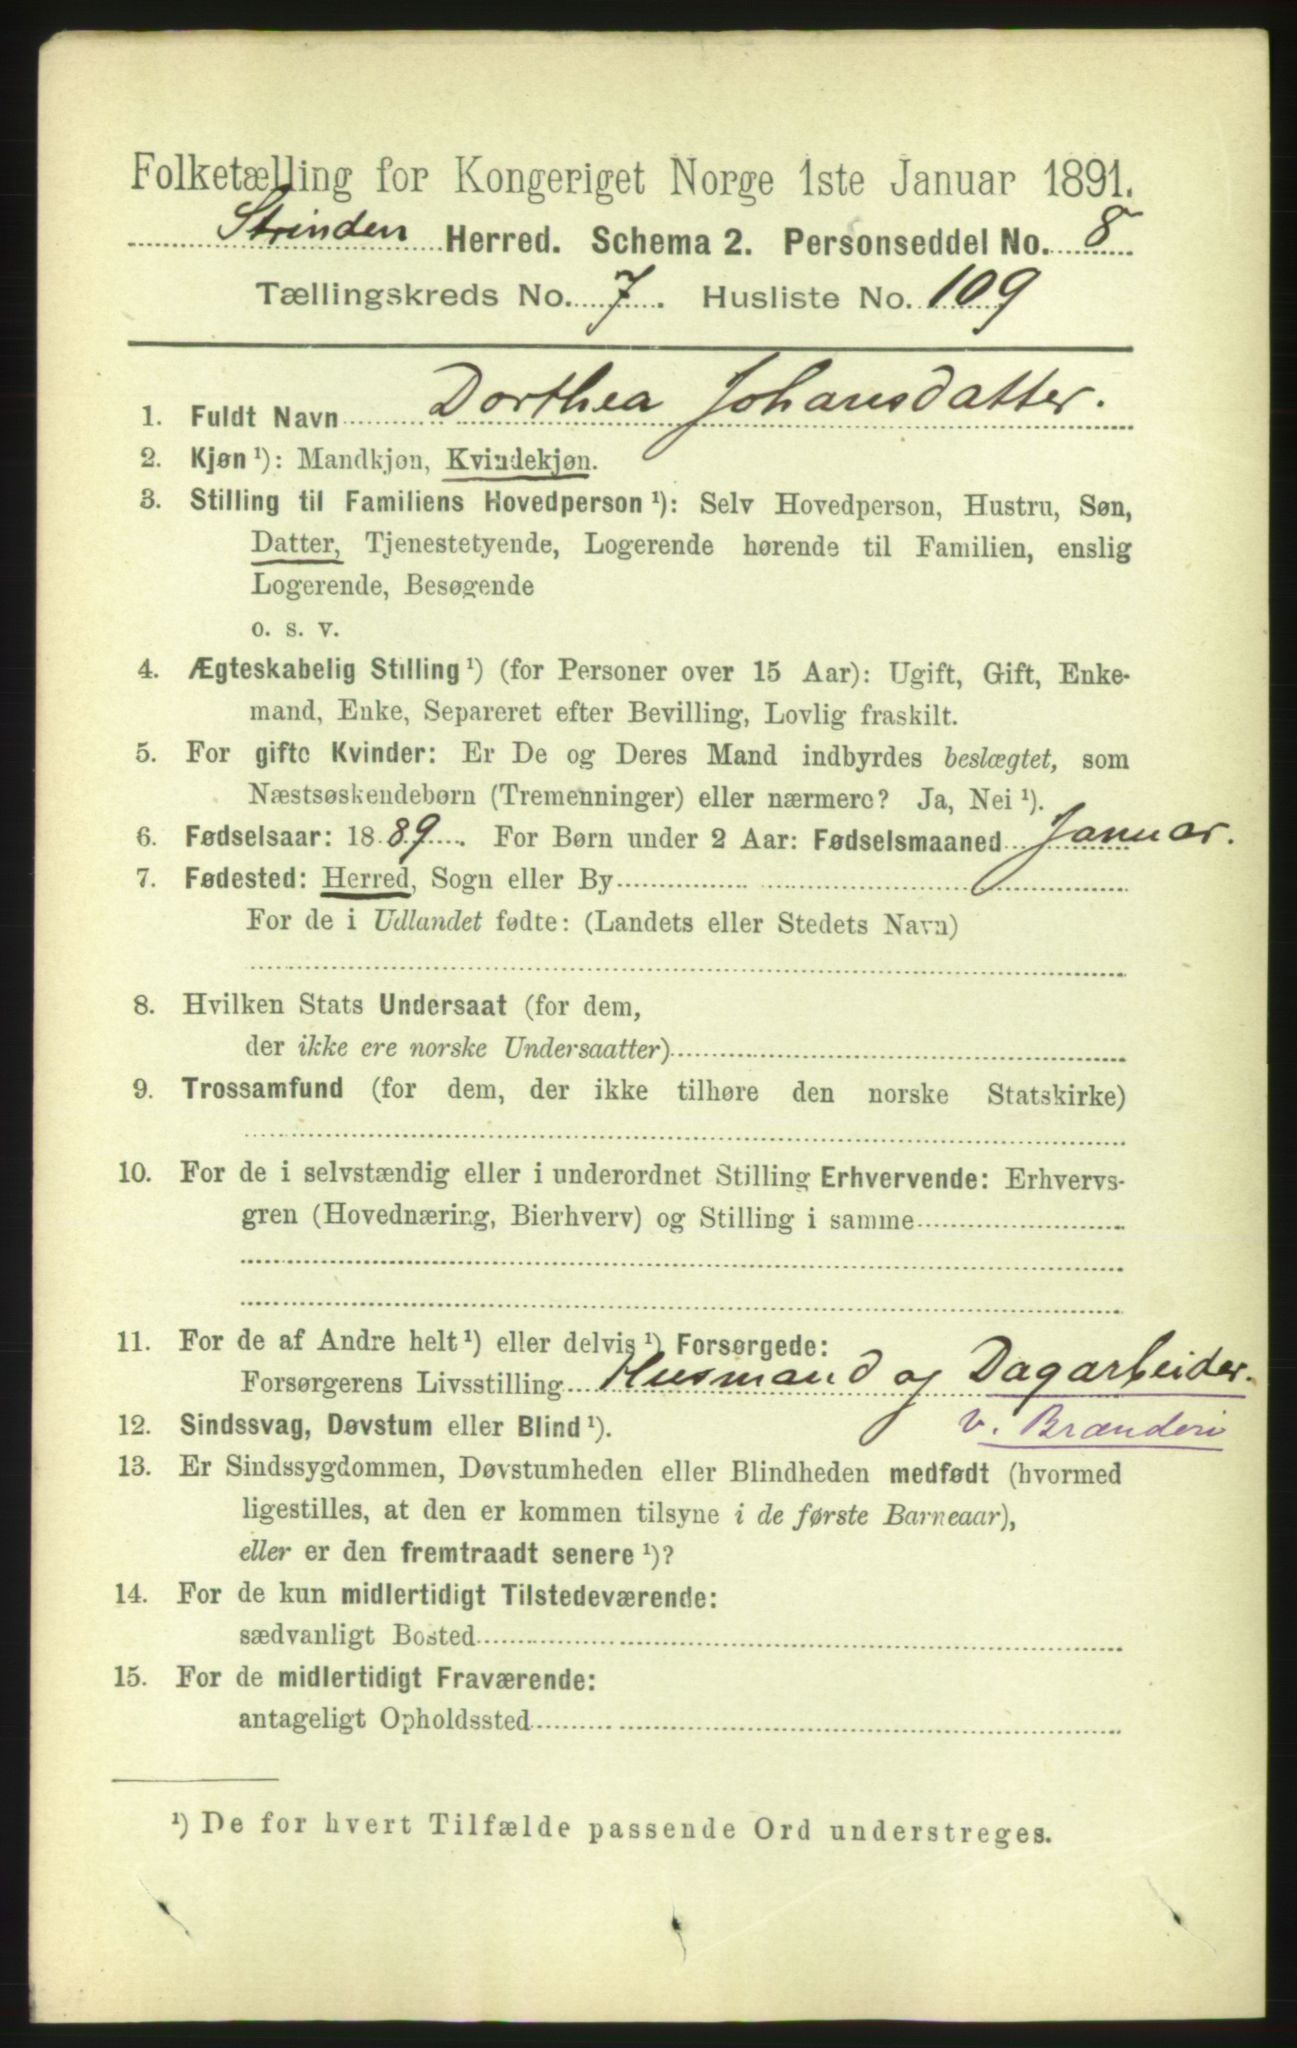 Folketælling for Kongeriget Norge 1ste Januar 1891.
Strinden Herred. Schema 2. Personseddel No. 8
Tællingskreds No. 7. Husliste No. 109
1. Fuldt Navn Dorthea Johansdatter.
2. Kjøn ¹): Mandkjøn, Kvindekjøn.
3. Stilling til Familiens Hovedperson ¹): Selv Hovedperson, Hustru, Søn,
Datter, Tjenestetyende, Logerende hørende til Familien, enslig
Logerende, Besøgende
o. s. v.
4. Ægteskabelig Stilling ¹) (for Personer over 15 Aar): Ugift, Gift, Enke-
mand, Enke, Separeret efter Bevilling, Lovlig fraskilt.
5. For gifte Kvinder: Er De og Deres Mand indbyrdes beslægtet, som
Næstsøskendebørn (Tremenninger) eller nærmere? Ja, Nei ¹).
6. Fødselsaar: 1889. For Børn under 2 Aar: Fødselsmaaned Januar.
7. Fødested: Herred, Sogn eller By
For de i Udlandet fødte: (Landets eller Stedets Navn)
8. Hvilken Stats Undersaat (for dem,
der ikke ere norske Undersaatter)
9. Trossamfund (for dem, der ikke tilhøre den norske Statskirke)
10. For de i selvstændig eller i underordnet Stilling Erhvervende: Erhvervs-
gren (Hovednæring, Bierhverv) og Stilling i samme
11. For de af Andre helt ¹) eller delvis ¹) Forsørgede:
Forsørgerens Livsstilling Husmand og Dagarbeider.
12. Sindssvag, Døvstum eller Blind ¹). v. Brænderi
13. Er Sindssygdommen, Døvstumheden eller Blindheden medfødt (hvormed
ligestilles, at den er kommen tilsyne i de første Barneaar),
eller er den fremtraadt senere ¹)?
14. For de kun midlertidigt Tilstedeværende:
sædvanligt Bosted
15. For de midlertidigt Fraværende:
antageligt Opholdssted
¹) De for hvert Tilfælde passende Ord understreges.